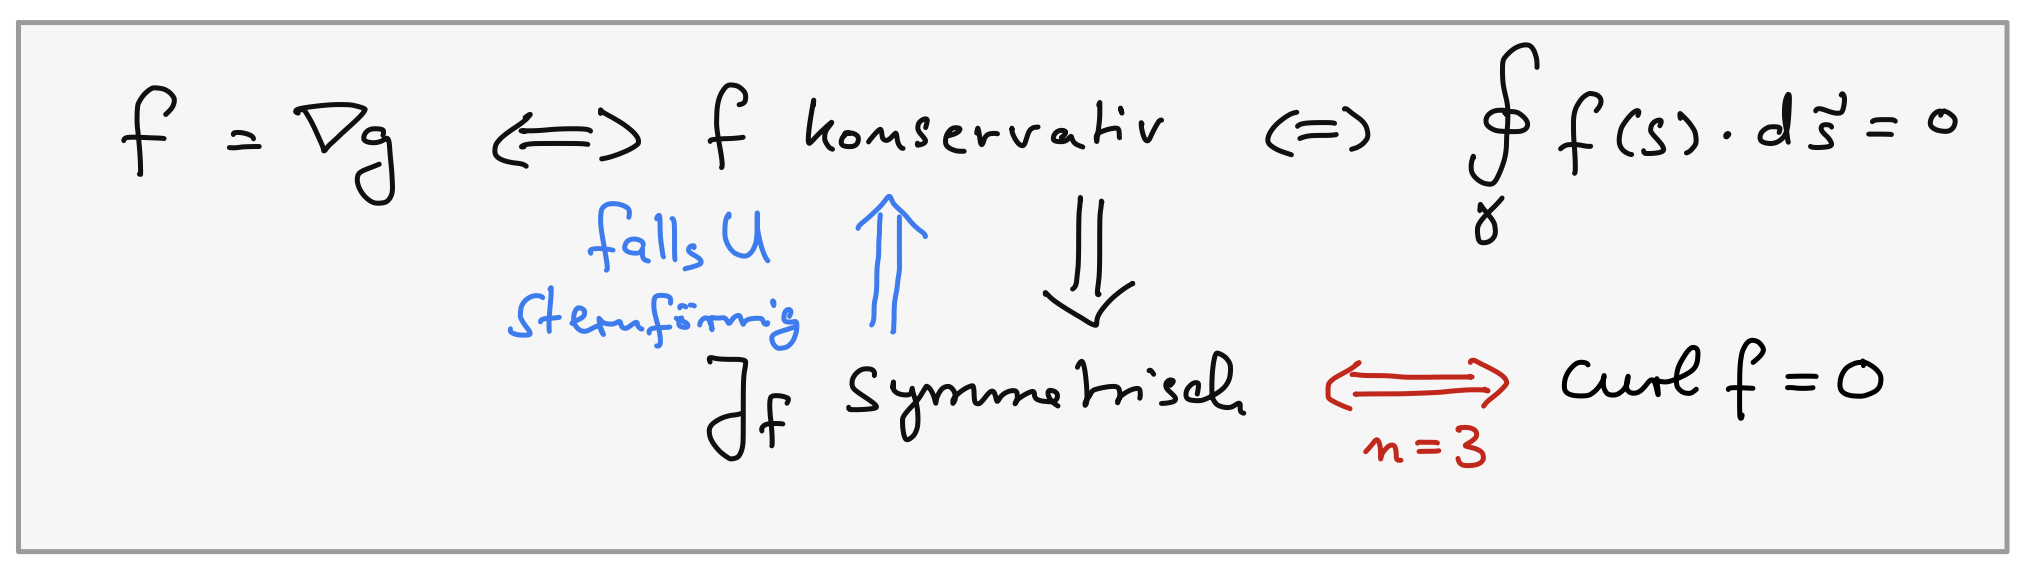 f = ∇g ⟺ f konservativ ⟺ ∮_γ f(s) · ds⃗ = 0
falls U ⇑ ⇓
sternförmig
J_f symmetrisch ⟺ curl f = 0
n = 3